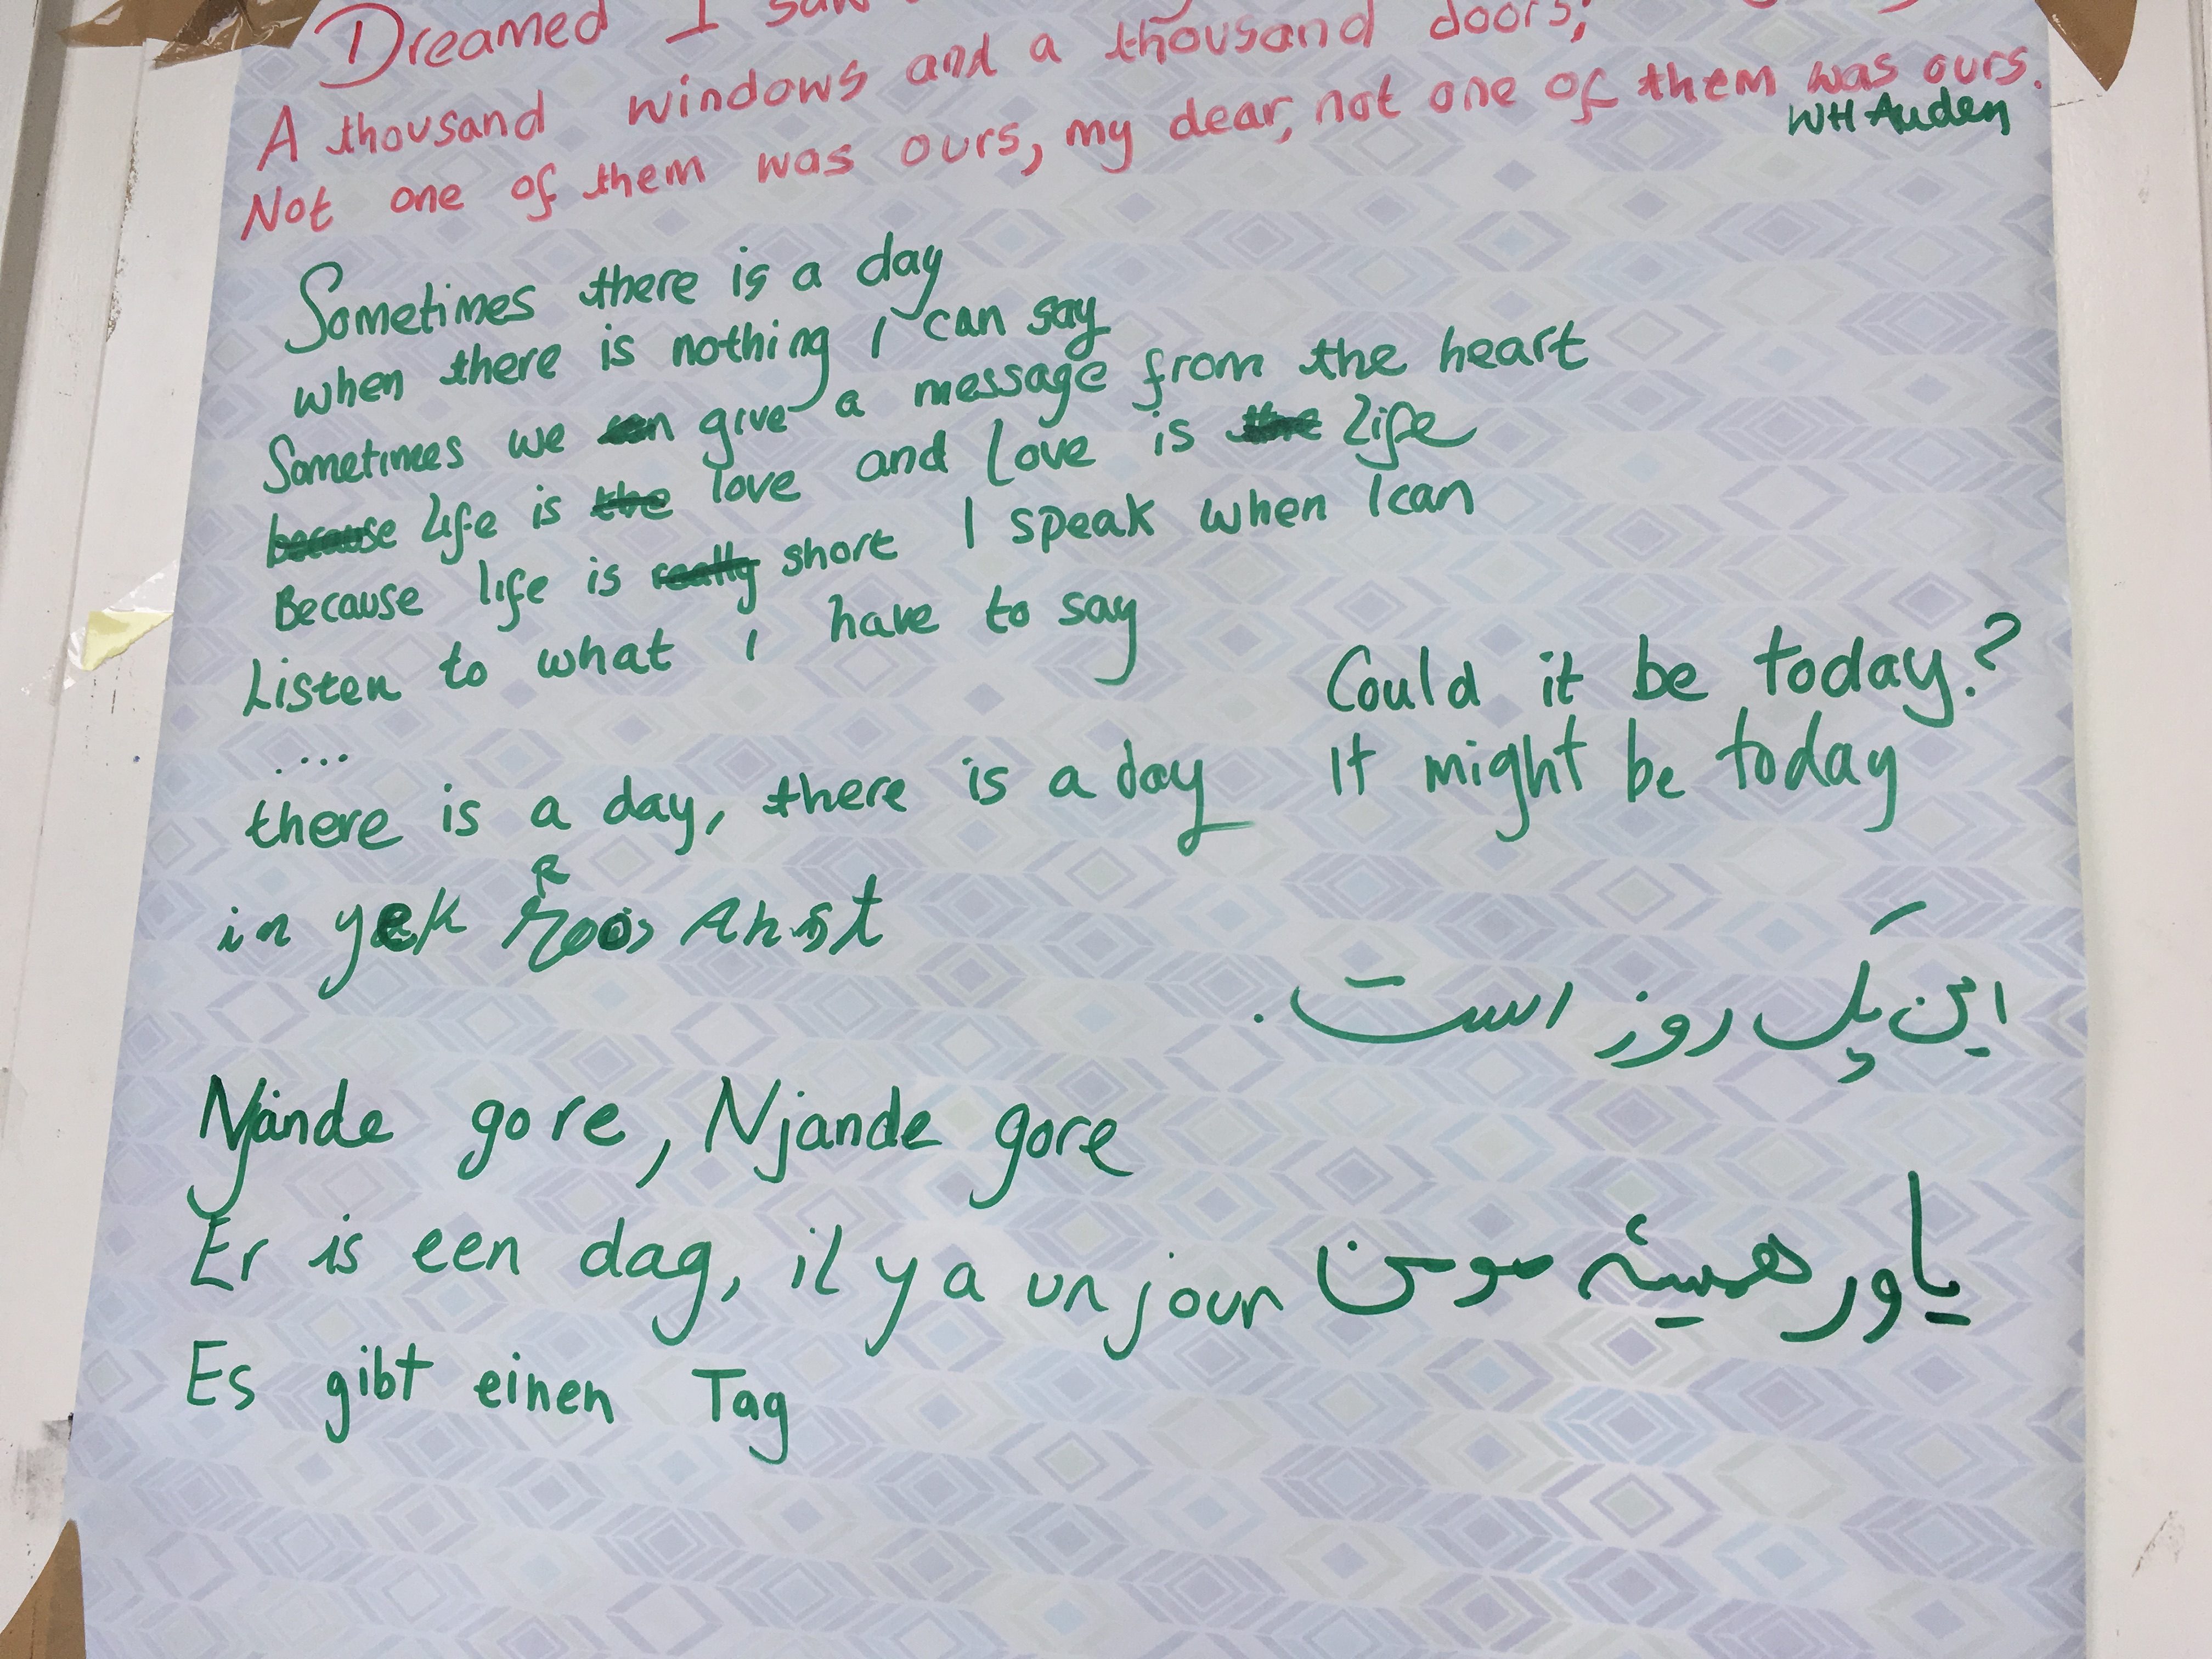 Dreamed I saw
A thousand windows and a thousand doors;
Not one of them was ours, my dear, not one of them was ours.
WH Auden
Sometimes there is a day
when there is nothing I can say
Sometimes we can give a message from the heart
because Life is the love and Love is the Life
Because life is really short I speak when I can
Listen to what I have to say
....
there is a day, there is a day
Could it be today?
It might be today
in yek Roos
این یک روز است.
Njande gore, Njande gore
Er is een dag, il y a un jour
یاور همیشه مومن
Es gibt einen Tag